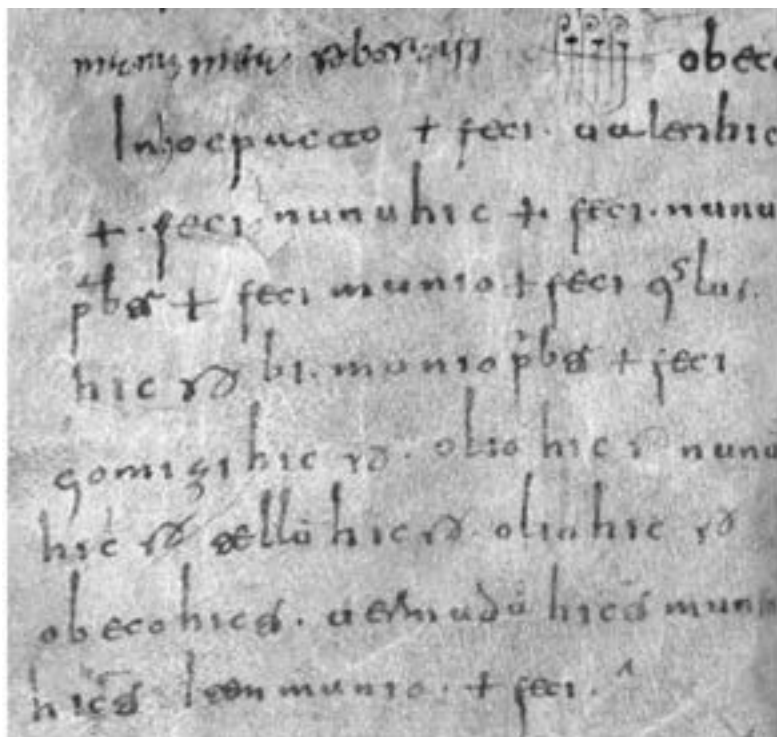 manus meas roboraui obeco
In hoc pacto + feci. ualeri hic
+. feci. nunu hic +. feci. nunu
prbs + feci munio + feci
hic ro bi. munio prbs + feci
gomizi hic ro. olio hic ro nunu
hic ro tellu hic ro. olio hic ro
obeco hic ts. uermudu hic ts muni
hic ts munio. + feci.